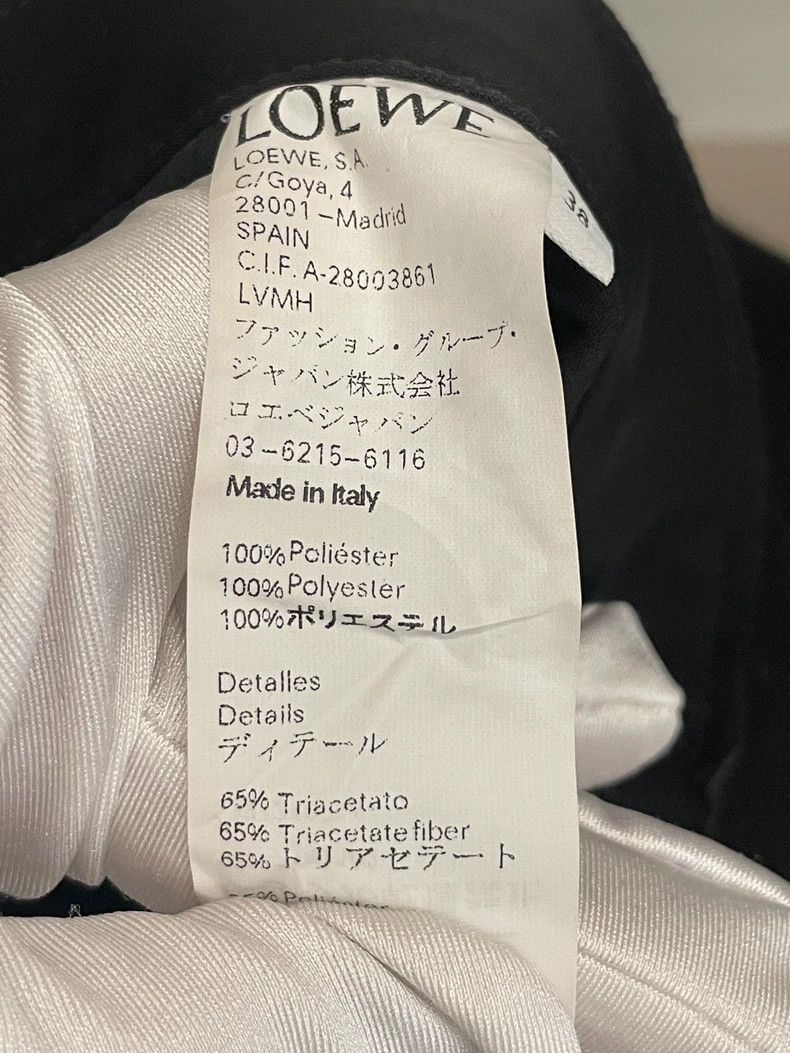 LOEWE
38
LOEWE, S.A.
C/Goya, 4
28001 –Madrid
SPAIN
C.I.F. A-28003861
LVMH
ファッション・グループ・
ジャパン株式会社
ロエベジャパン
03–6215–6116
Made in Italy
100% Poliéster
100% Polyester
100% ポリエステル
Detalles
Details
ディテール
65% Triacetato
65% Triacetate fiber
65% トリアセテート